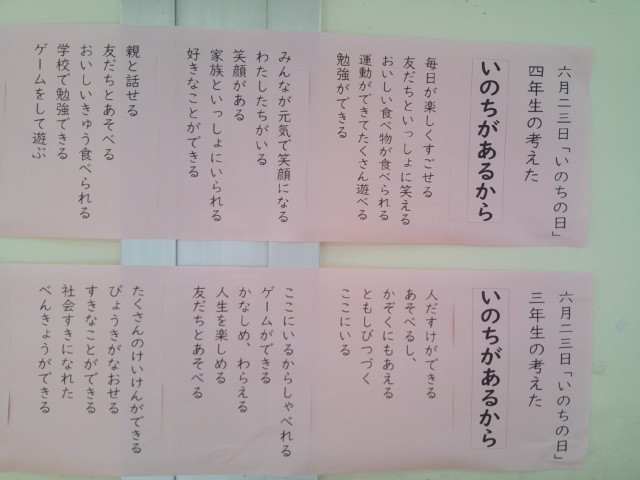 六月二三日「いのちの日」
四年生の考えた
いのちがあるから
毎日が楽しくすごせる
友だちといっしょに笑える
おいしい食べ物が食べられる
運動ができてたくさん遊べる
勉強ができる
みんなが元気で笑顔になる
わたしたちがいる
笑顔がある
家族といっしょにいられる
好きなことができる
親と話せる
友だちとあそべる
おいしいきゅう食べられる
学校で勉強できる
ゲームをして遊ぶ
六月二三日「いのちの日」
三年生の考えた
いのちがあるから
人だすけができる
あそべるし、
かぞくにもあえる
ともしびつづく
ここにいる
ここにいるからしゃべれる
ゲームができる
かなしめ、わらえる
人生を楽しめる
友だちとあそべる
たくさんのけいけんができる
びょうきがなおせる
すきなことができる
社会すきになれた
べんきょうができる